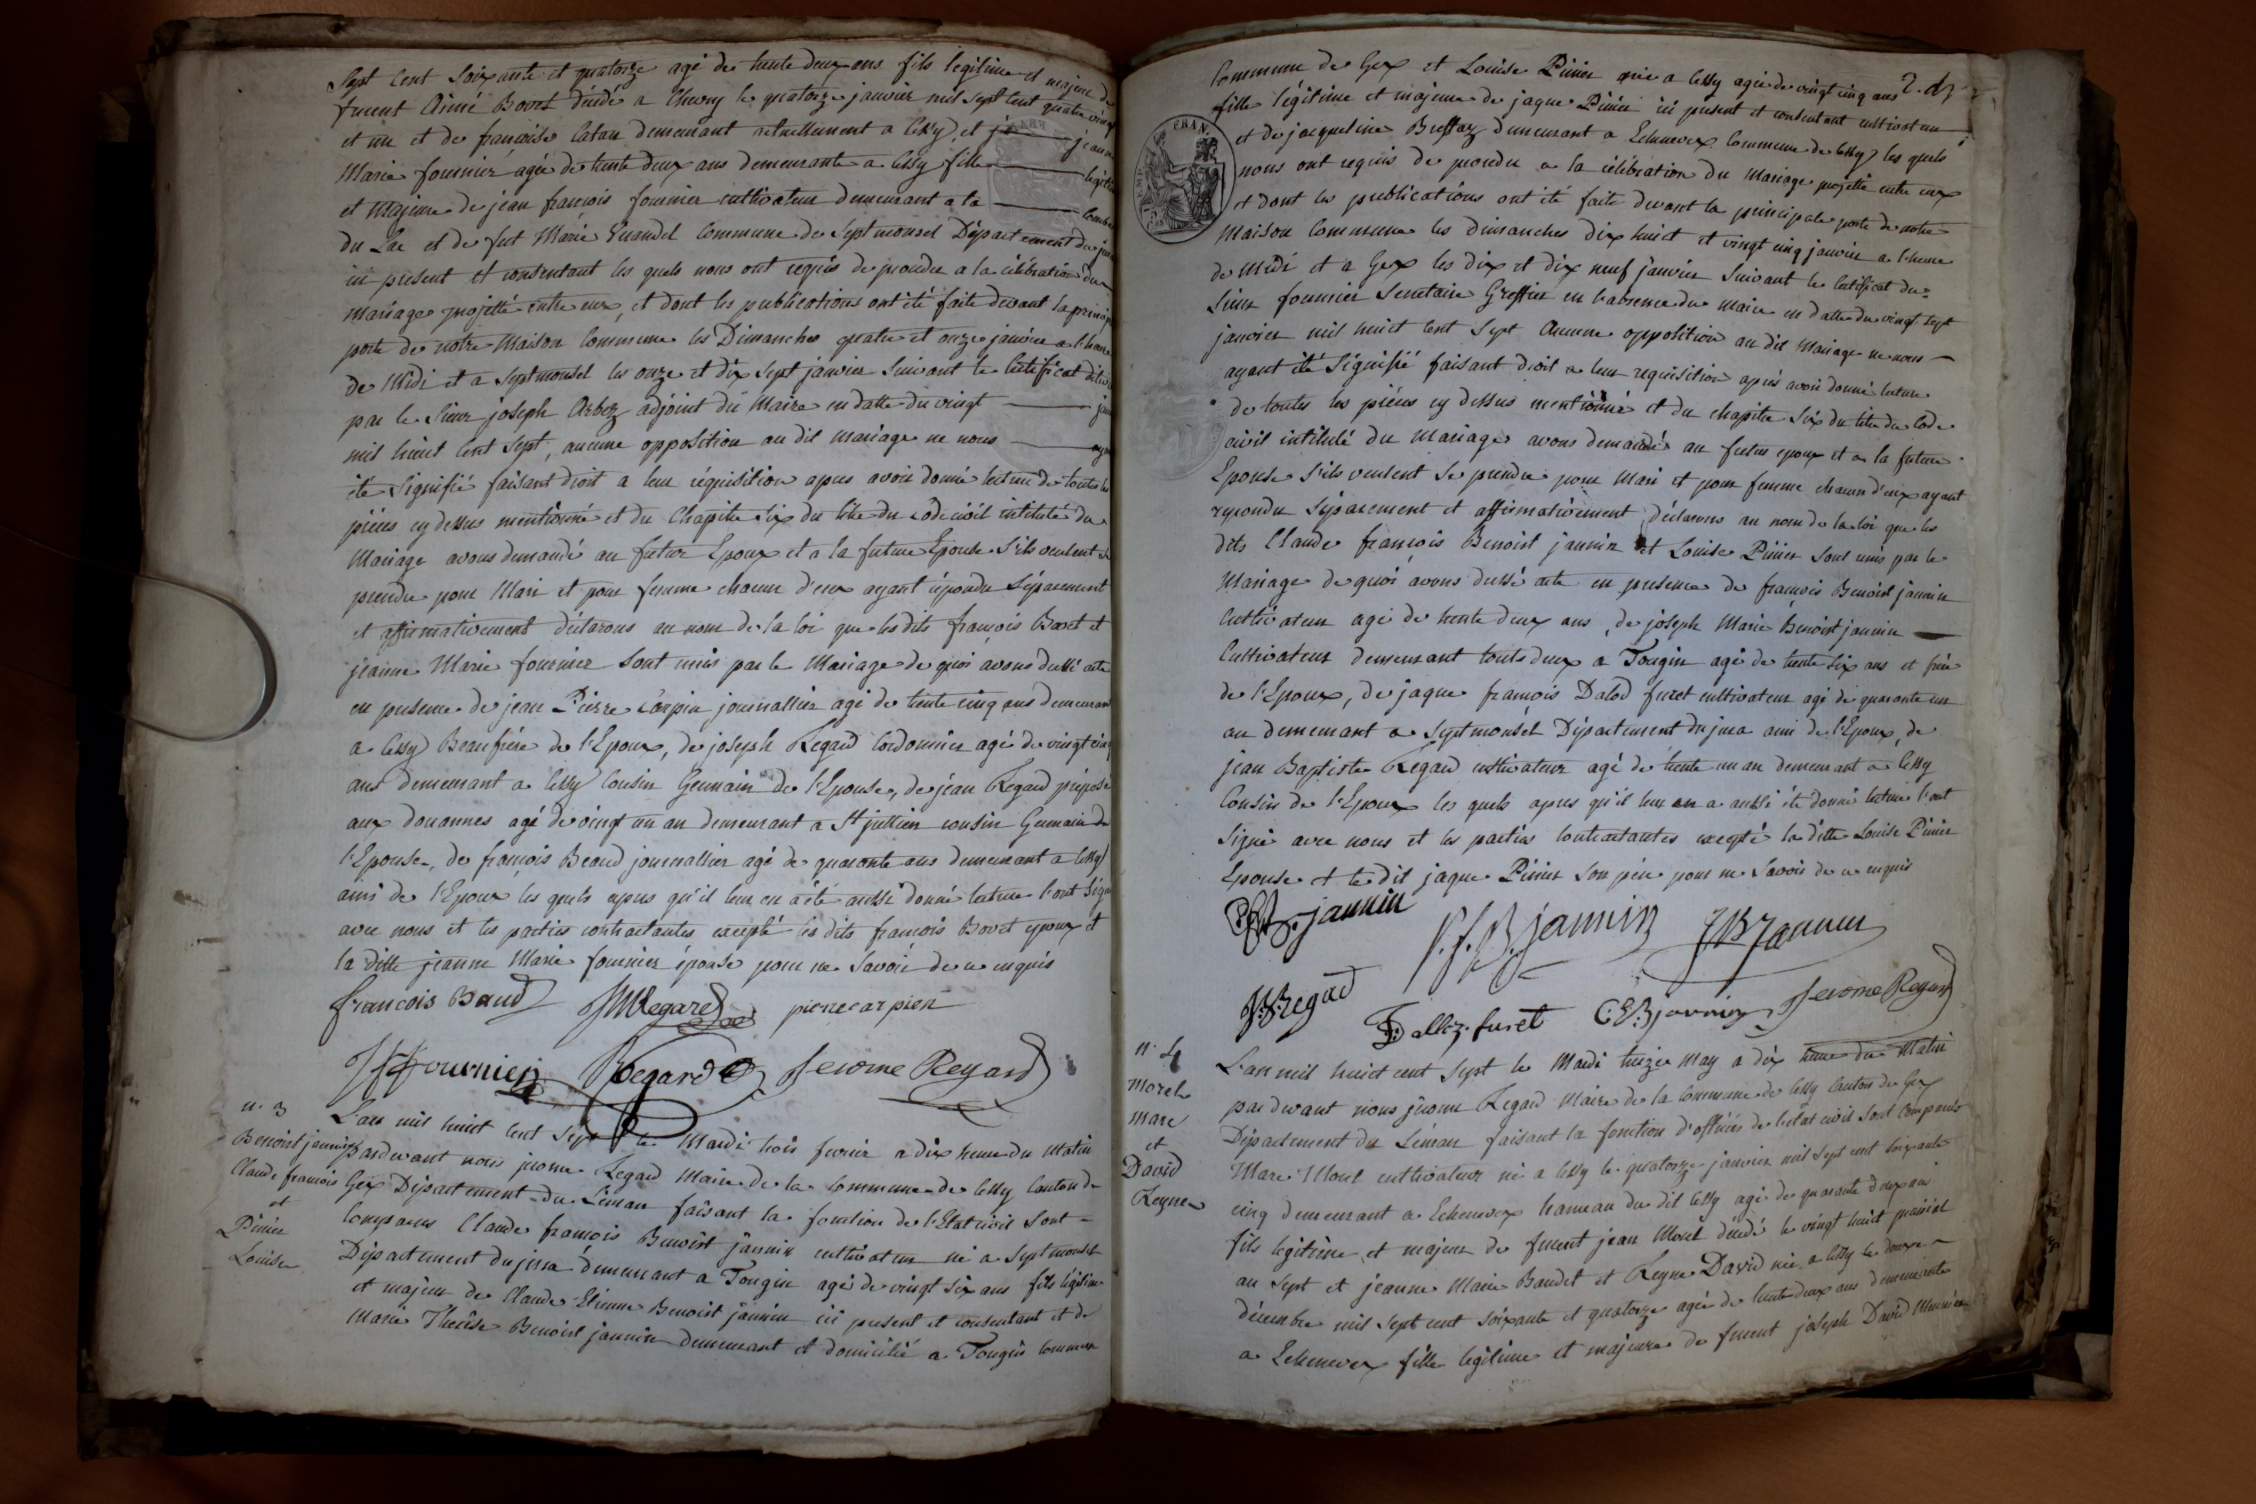 Sept Cent Soixante et quatorze agé de trente deux ans fils legitime et majeur de
fueent Aimé Bovet décédé a Chevry le quatorze janvier mil sept cent quatre vingt
et un et de françoise Catan demeurant actuellement a Cessy et jeanne
Marie fournier agée de trente deux ans demeurante a Cessy fille legitime
et Majeure de jean françois fournier cultivateur demeurant a la Combe
du Lac et de fut Marie Grandel Commune de Septmoncel Departement du jura
ici present et consentant les quels nous ont requis de procedu a la célébration du
mariage projetté entre eux, et dont les publications ont été faite devant la principale
porte de notre Maison Commune les Dimanches quatre et onze janvier a l'heure
de Midi et a Septmoncel les onze et dix sept janvier Suivant le Certificat délivré
par le Sieur joseph Arbez adjoint du Maire en datte du vingt
mil huict Cent Sept, aucune opposition au dit mariage ne nous ayant
été Signifié faisant droit a leur réquisition apres avoir donné lecture de toutes les
piéces cy dessus mentionné et du Chapitre Six du titre du Code civil intitulé du
Mariage avons demandé au futur Epoux et a la future Epouse s'ils veulent se
prendre pour Mari et pour femme chacun d'eux ayant répondu Séparement
et affirmativement déclarons au nom de la loi que les dits françois Bovet et
jeanne Marie fournier sont unis par le Mariage de quoi avons dressé acte
en presence de jean Pierre Carpin journallier agé de trente cinq ans demeurant
a Cessy Beaufrére de l'Epoux, de joseph Regard Cordonnier agé de vingt cinq
ans demeurant a Cessy Cousin Germain de l'Epouse, de jean Regard préposé
aux douannes agé de vingt un an demeurant a St jullien cousin Germain de
l'Epouse, de françois Beaud journallier agé de quarante ans demeurant a Cessy
ami de l'Epoux les quels apres qu'il leur en a été aussi donné lecture l'ont Signé
avec nous et les parties contractantes excepté les dits françois Bovet epoux et
la ditte jeanne Marie fournier épouse pour ne Savoir de ce enquis
francois Baud JMRegard pierre carpien
JFfournier Regard Jerome Regard
n. 3
Benoist jannin
Claude françois
et
Pinier
Louise
L'an mil huict cent Sept le Mardi trois fevrier a dix heure du Matin
Pardevant nous jerome Regard Maire de la Commune de Cessy Canton de
Gex Département du Léman faisant la fonction de l'Etat civil Sont
Comparus Claude françois Benoist jannin cultivateur né a Septmoncel
Département du jura demeurant a Tougin agé de vingt Six ans fils légitime
et majeur de Claude Etienne Benoist jannin ici present et consentant et de
Marie Therêse Benoist jannin demeurant et domicilié a Tougin Commune
2. dz
Commune de Gex et Louise Pinier née a Cessy agée de vingt cinq ans
fille légitime et majeure de jaque Pinier ici present et consentant cultivateur
et de jacqueline Buffaz demeurant a Echenevex Commune de Cessy les quels
nous ont requis de procedu a la célébration du Mariage projetté entre eux
et dont les publications ont été faite devant la principale porte de notre
Maison Commune les dimanches dix huict et vingt cinq janvier a l'heure
de Midi et a Gex les dix et dix neuf janvier Suivant le Certificat du
Sieur fournier Secretaire Greffier en l'absence du Maire en datte du vingt sept
janvier mil huict cent Sept Aucune opposition au dit Mariage ne nous
ayant été Signifié faisant droit a leur requisition apres avoir donné lecture
de toutes les piéces cy dessus mentionné et du chapitre Six du titre du Code
civil intitulé du Mariage avons demandé au futur epoux et a la future
Epouse s'ils veulent se prendre pour Mari et pour femme chacun d'eux ayant
repondu Séparement et affirmativement déclarons au nom de la loi que les
dits Claude françois Benoist jannin et Louise Pinier sont unis par le
Mariage de quoi avons dressé acte en presence de françois Benoist jannin
Cultivateur agé de trente deux ans, de joseph Marie Benoist jannin
Cultivateur demeurant touts deux a Tougin agé de trente Six ans et frére
de l'Epoux, de jaque françois Dalod furet cultivateur agé de quarante un
an demeurant a Septmoncel Département du jura ami de l'Epoux, de
jean Baptiste Regard cultivateur agé de trente un an demeurant a Cessy
Cousin de l'Epoux les quels apres qu'il leur en a aussi été donné lecture l'ont
Signé avec nous et les parties Contractantes excepté la ditte Louise Pinier
Epouse et le dit jaque Pinier Son pére pour ne Savoir de ce enquis
jannin C.f.B. jannin JMBJannin
JBRegad F. Dalloz. furet C.E.B jannin Jerome Regard
n. 4
Morel
Marc
et
David
Reyne
L'an mil huict cent Sept le Mardi treize May a dix heure du Matin
pardevant nous jérome Regard Maire de la Commune de Cessy Canton de Gex
Département du Léman faisant la fonction d'officier de l'etat civil Sont Comparus
Marc Morel cultivateur né a Cessy le quatorze janvier mil sept cent soixante
cinq demeurant a Echenevex hameau du dit Cessy agé de quarante deux ans
fils legitime et majeur de fueent jean Morel décédé le vingt huit prairial
an Sept et jeanne Marie Baudet et Reyne David née a Cessy le douze
décembre mil sept cent soixante et quatorze agée de trente deux ans demeurante
a Echenevex fille legitime et majeure de fueent joseph David Meunier